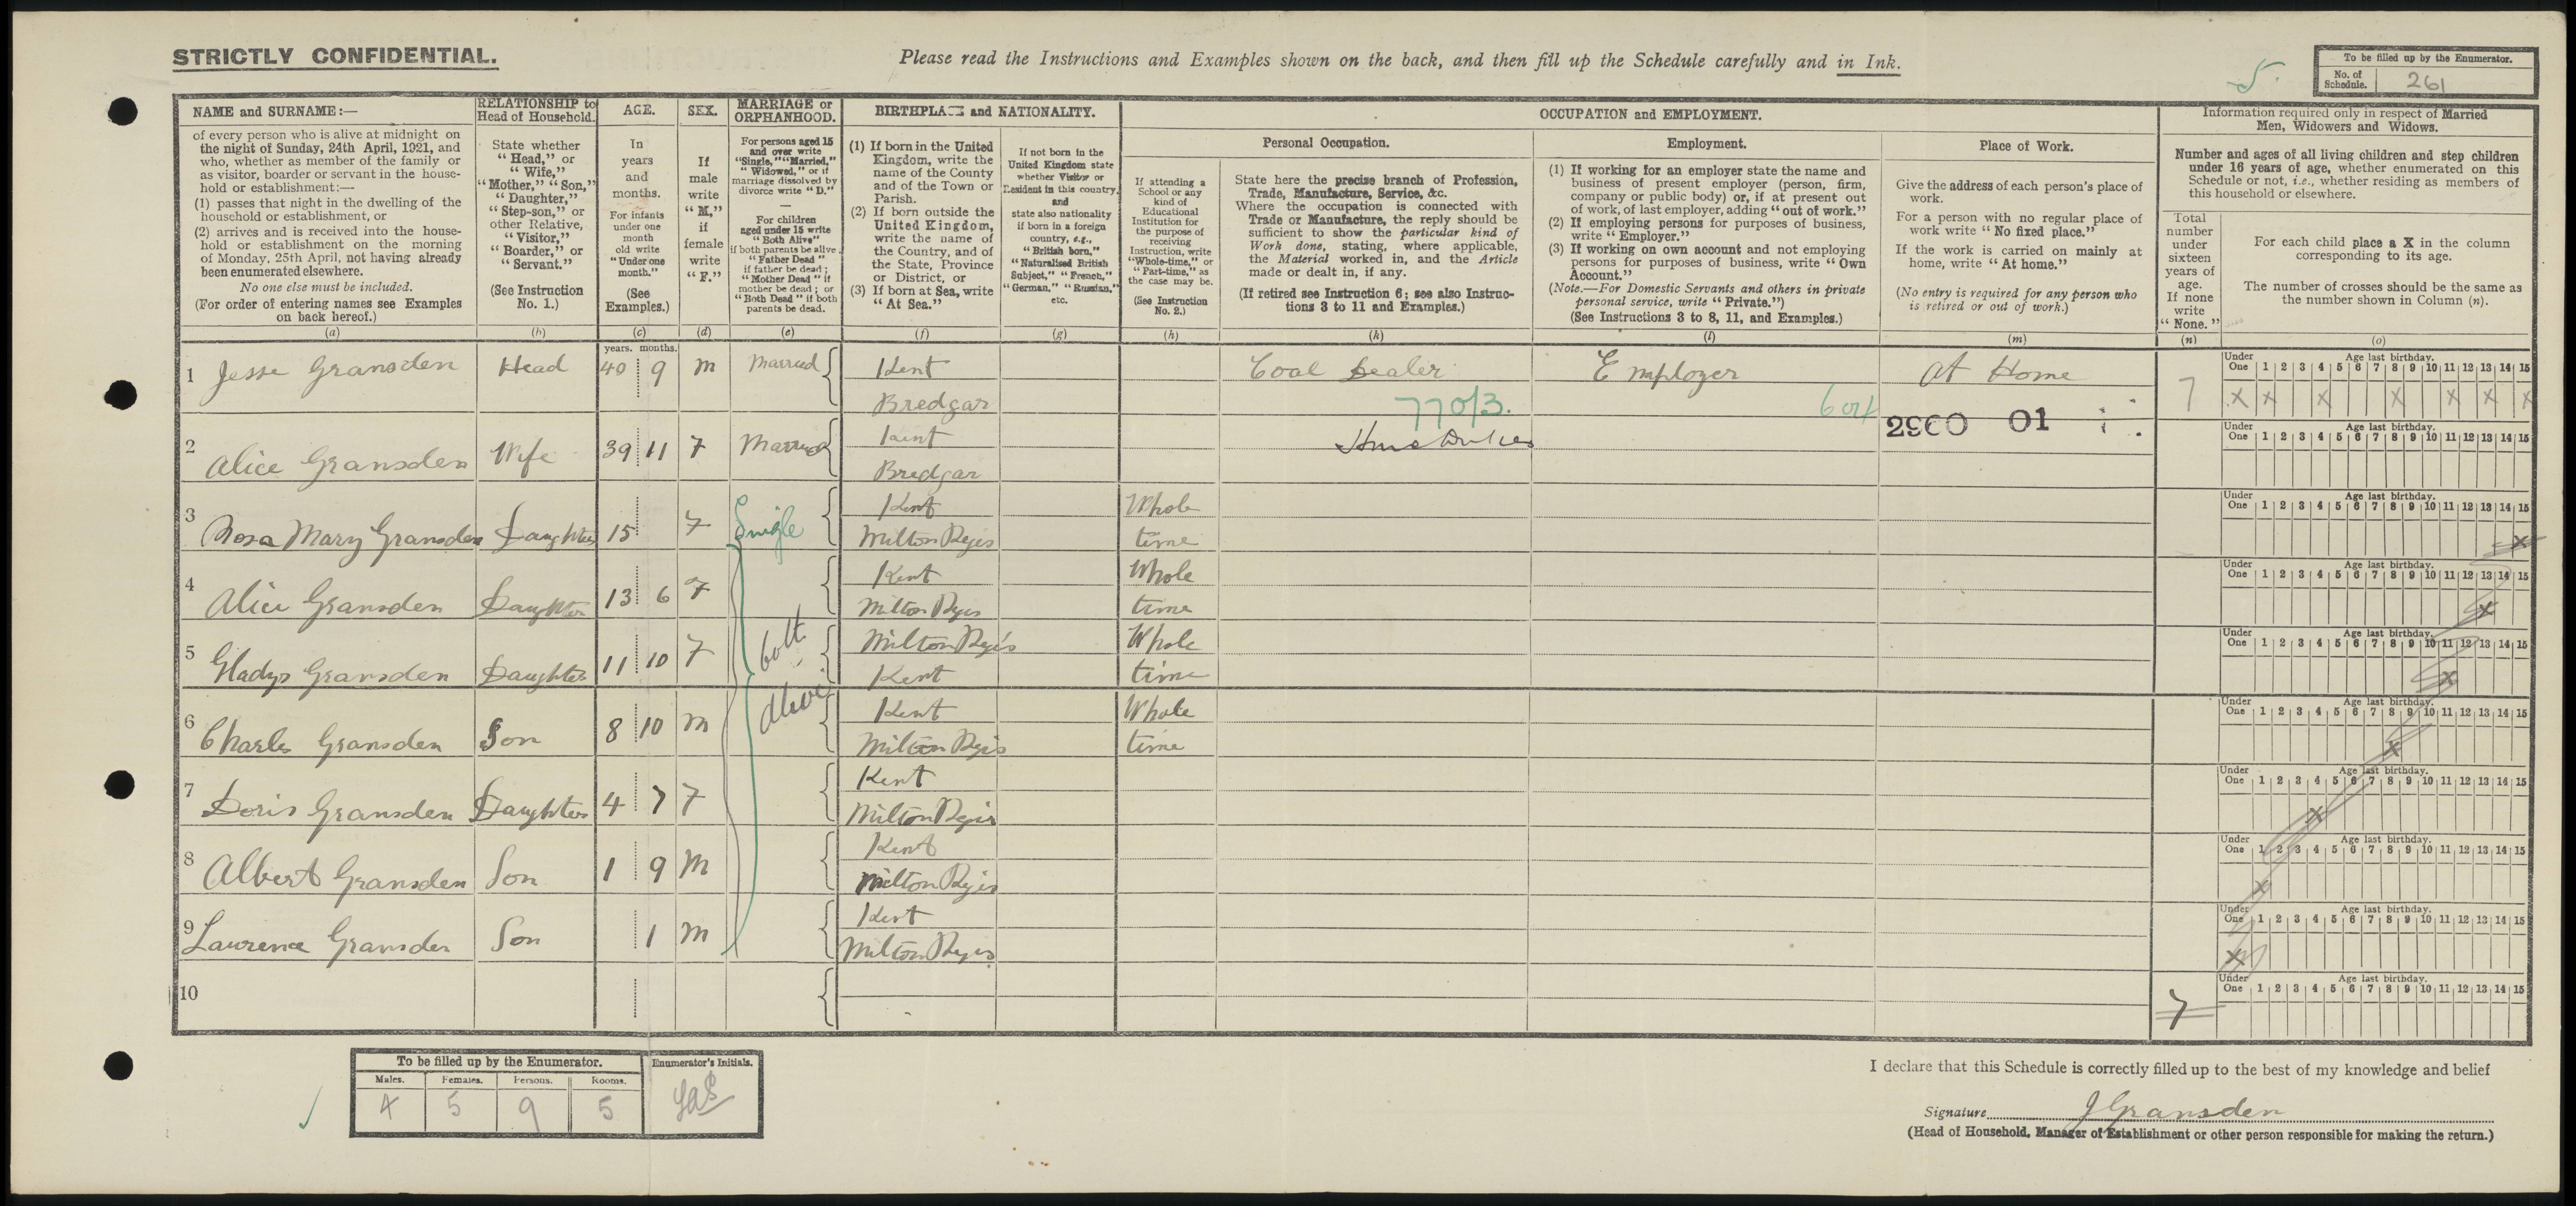 STRICTLY CONFIDENTIAL.
Please read the Instructions and Examples shown on the back, and then fill up the Schedule carefully and in Ink.
5.
To be filled up by the Enumerator.
No. of Schedule. 261
NAME and SURNAME:—
of every person who is alive at midnight on
the night of Sunday, 24th April, 1921, and
who, whether as member of the family or
as visitor, boarder or servant in the house-
hold or establishment:—
(1) passes that night in the dwelling of the
household or establishment, or
(2) arrives and is received into the house-
hold or establishment on the morning
of Monday, 25th April, not having already
been enumerated elsewhere.
No one else must be included.
(For order of entering names see Examples
on back hereof.)
(a)
RELATIONSHIP to
Head of Household.
State whether
"Head," or
"Wife,"
"Mother," "Son,"
"Daughter,"
"Step-son," or
other Relative,
"Visitor,"
"Boarder," or
"Servant."
(See Instruction
No. 1.)
(b)
AGE.
In
years
and
months.
For infants
under one
month
old write
"Under one
month."
(See
Examples.)
(c)
SEX.
If
male
write
"M,"
if
female
write
"F."
(d)
MARRIAGE or
ORPHANHOOD.
For persons aged 15
and over write
"Single," "Married,"
"Widowed," or if
marriage dissolved by
divorce write "D."
—
For children
aged under 15 write
"Both Alive"
if both parents be alive;
"Father Dead"
if father be dead;
"Mother Dead" if
mother be dead; or
"Both Dead" if both
parents be dead.
(e)
BIRTHPLACE and NATIONALITY.
(1) If born in the United
Kingdom, write the
name of the County
and of the Town or
Parish.
(2) If born outside the
United Kingdom,
write the name of
the Country, and of
the State, Province
or District, or
(3) If born at Sea, write
"At Sea."
(f)
If not born in the
United Kingdom state
whether Visitor or
Resident in this country,
and
state also nationality
if born in a foreign
country, e.g.,
"British born,"
"Naturalised British
Subject," "French,"
"German," "Russian,"
etc.
(g)
OCCUPATION and EMPLOYMENT.
If attending a
School or any
kind of
Educational
Institution for
the purpose of
receiving
Instruction, write
"Whole-time," or
"Part-time," as
the case may be.
(See Instruction
No. 2.)
(h)
Personal Occupation.
State here the precise branch of Profession,
Trade, Manufacture, Service, &c.
Where the occupation is connected with
Trade or Manufacture, the reply should be
sufficient to show the particular kind of
Work done, stating, where applicable,
the Material worked in, and the Article
made or dealt in, if any.
(If retired see Instruction 6; see also Instruc-
tions 3 to 11 and Examples.)
(k)
Employment.
(1) If working for an employer state the name and
business of present employer (person, firm,
company or public body) or, if at present out
of work, of last employer, adding "out of work."
(2) If employing persons for purposes of business,
write "Employer."
(3) If working on own account and not employing
persons for purposes of business, write "Own
Account."
(Note.—For Domestic Servants and others in private
personal service, write "Private.")
(See Instructions 3 to 8, 11, and Examples.)
(l)
Place of Work.
Give the address of each person's place of
work.
For a person with no regular place of
work write "No fixed place."
If the work is carried on mainly at
home, write "At home."
(No entry is required for any person who
is retired or out of work.)
(m)
Information required only in respect of Married
Men, Widowers and Widows.
Number and ages of all living children and step children
under 16 years of age, whether enumerated on this
Schedule or not, i.e., whether residing as members of
this household or elsewhere.
Total
number
under
sixteen
years of
age.
If none
write
"None."
(n)
For each child place a X in the column
corresponding to its age.
The number of crosses should be the same as
the number shown in Column (n).
(o)
years. months.
1 Jesse Gransden Head 40 9 M Married Kent Coal Dealer Employer At Home 7
Under One 1 2 3 4 5 6 7 8 9 10 11 12 13 14 15 Age last birthday.
X X X X X X X
Bredgar 770/3. 2960 01
2 Alice Gransden Wife 39 11 F Married Kent Home Duties
Bredgar
Under One 1 2 3 4 5 6 7 8 9 10 11 12 13 14 15 Age last birthday.
3 Rosa Mary Gransden Daughter 15 F Single Kent Whole
Milton Regis time
Under One 1 2 3 4 5 6 7 8 9 10 11 12 13 14 15 Age last birthday.
X
4 Alice Gransden Daughter 13 6 F Kent Whole
Milton Regis time
Under One 1 2 3 4 5 6 7 8 9 10 11 12 13 14 15 Age last birthday.
X
5 Gladys Gransden Daughter 11 10 F both Milton Regis Whole
Kent time
Under One 1 2 3 4 5 6 7 8 9 10 11 12 13 14 15 Age last birthday.
X
6 Charles Gransden Son 8 10 M alive Kent Whole
Milton Regis time
Under One 1 2 3 4 5 6 7 8 9 10 11 12 13 14 15 Age last birthday.
X
7 Doris Gransden Daughter 4 7 F Kent
Milton Regis
Under One 1 2 3 4 5 6 7 8 9 10 11 12 13 14 15 Age last birthday.
X
8 Albert Gransden Son 1 9 M Kent
Milton Regis
Under One 1 2 3 4 5 6 7 8 9 10 11 12 13 14 15 Age last birthday.
X
9 Laurence Gransden Son 1 M Kent
Milton Regis
Under One 1 2 3 4 5 6 7 8 9 10 11 12 13 14 15 Age last birthday.
X
10
7
Under One 1 2 3 4 5 6 7 8 9 10 11 12 13 14 15 Age last birthday.
To be filled up by the Enumerator.
Males. Females. Persons. Rooms.
4 5 9 5
Enumerator's Initials.
I declare that this Schedule is correctly filled up to the best of my knowledge and belief
Signature J Gransden
(Head of Household, Manager of Establishment or other person responsible for making the return.)